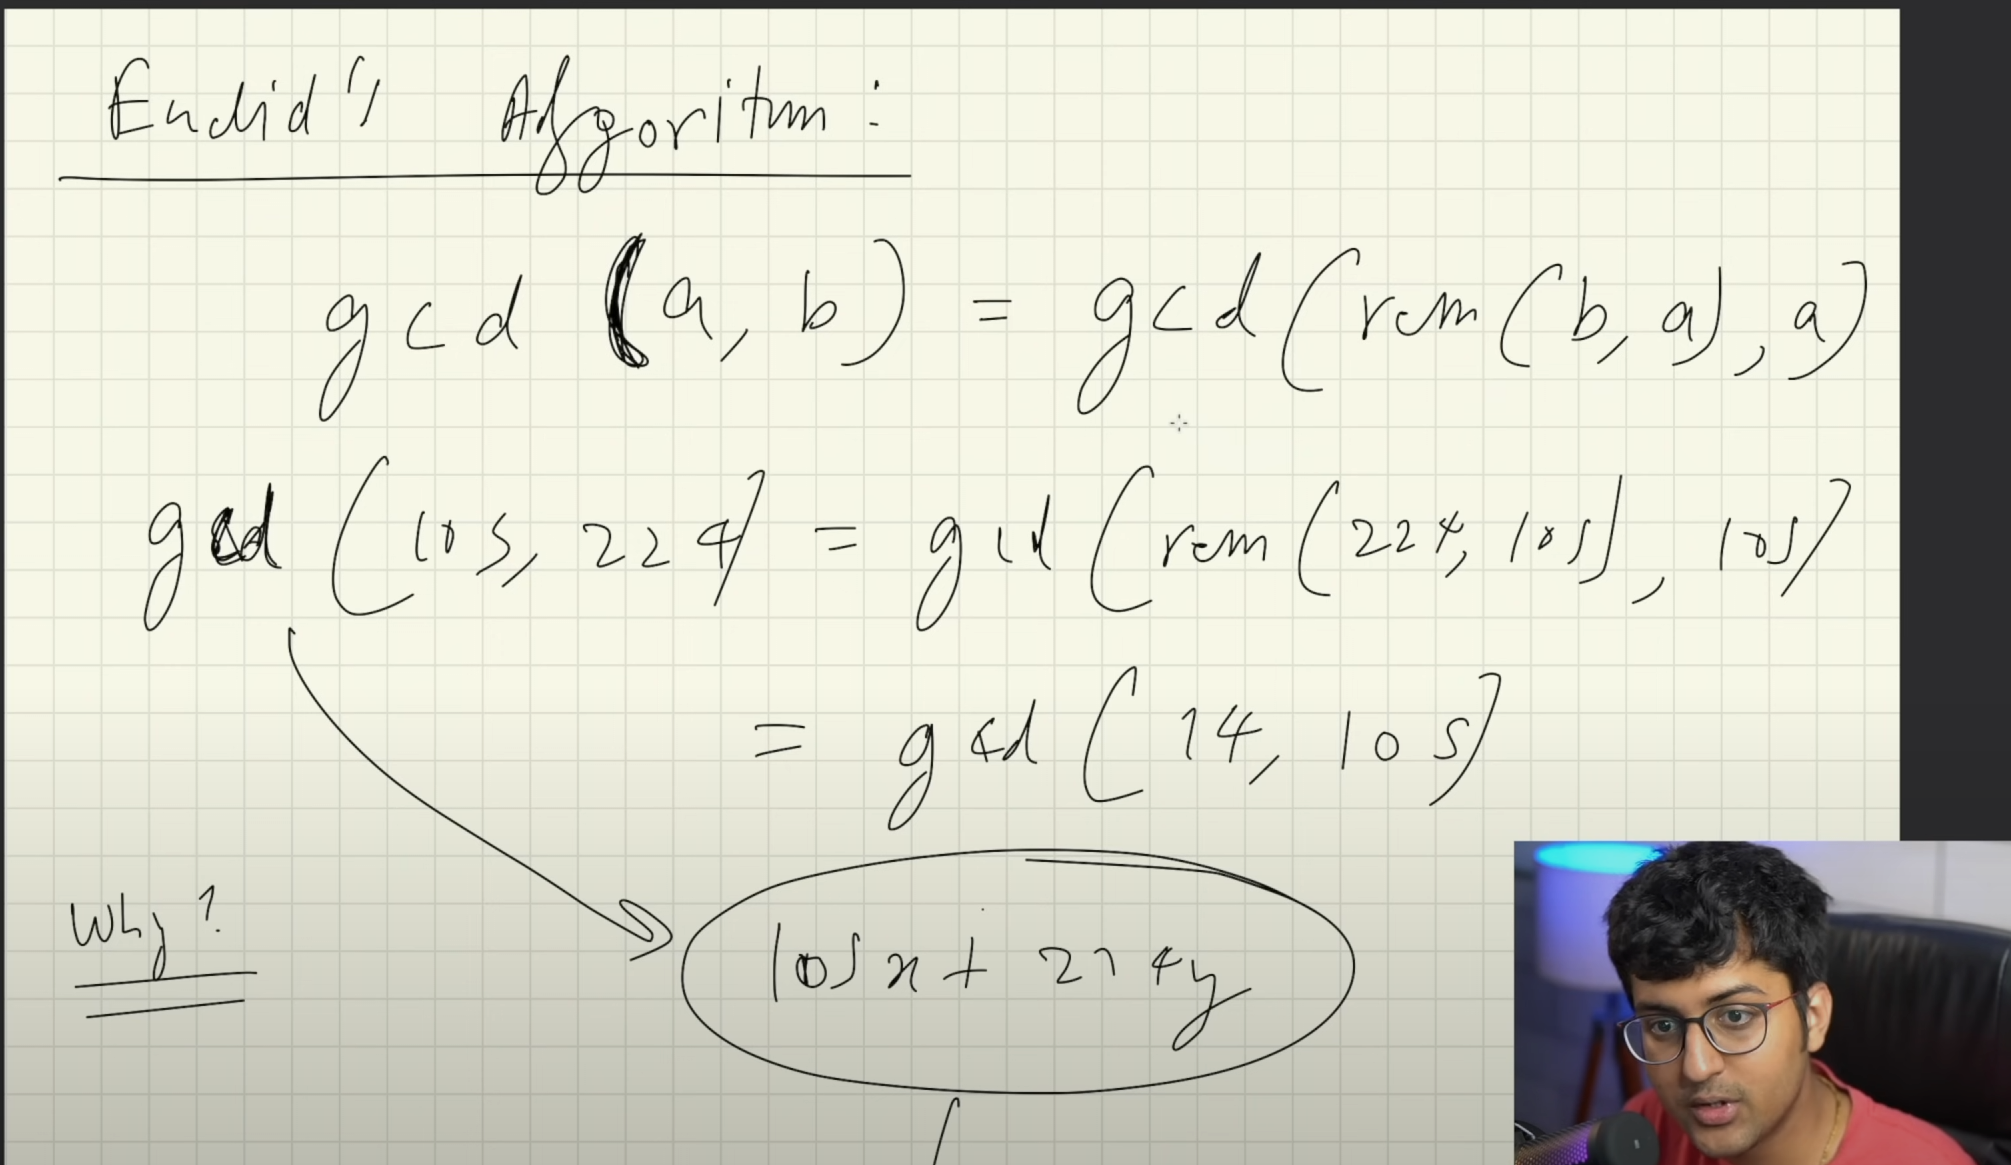 Euclid's Algoritum:
gcd (a, b) = gcd (rem (b, a), a)
gcd (105, 224) = gcd (rem (224, 105), 105)
= gcd (14, 105)
Why?
105x + 224y